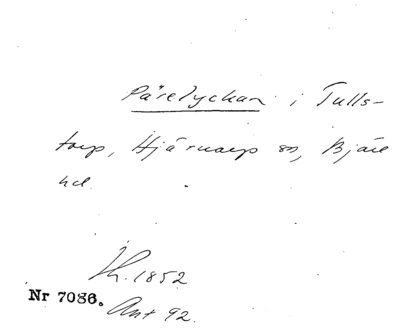 Pärelyckan i Tulls-
torp, Hjärnarp sn, Bjäre
hd.
Kh. 1852
Nr 7086.
Ant 92.